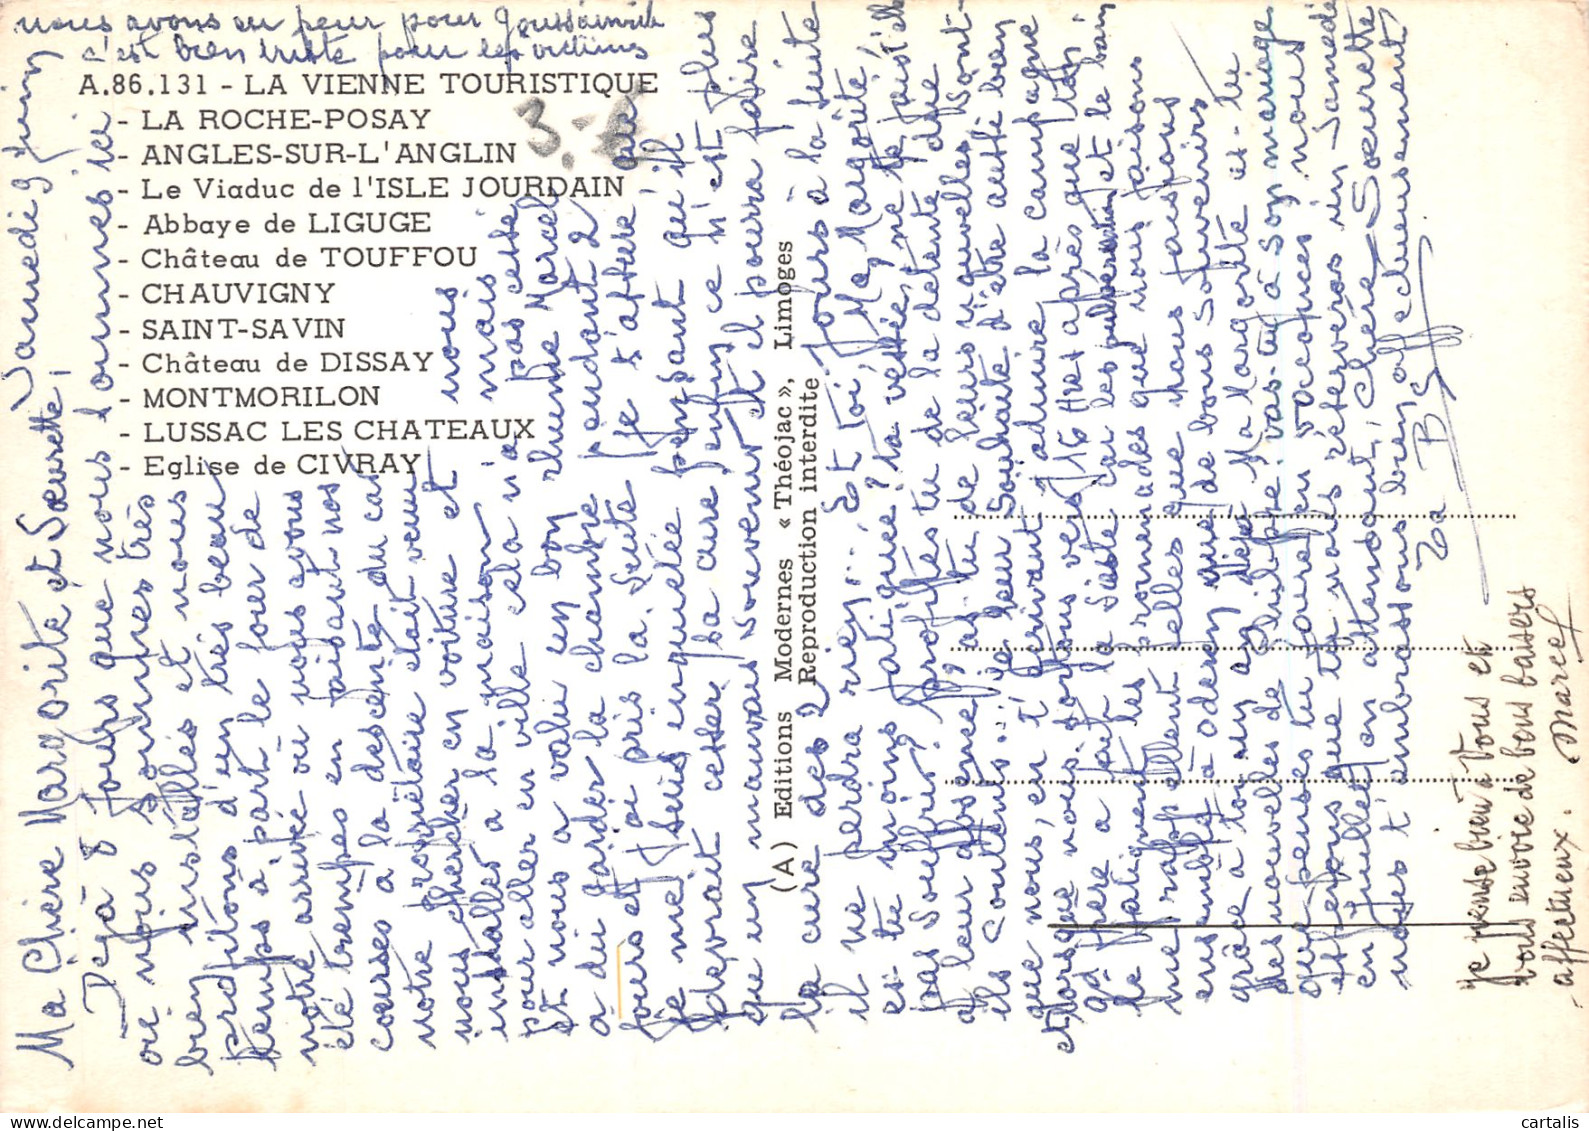 nous avons eu peur pour Goussainville
c'est bien triste pour les victimes
A.86.131 - LA VIENNE TOURISTIQUE
- LA ROCHE-POSAY
- ANGLES-SUR-L'ANGLIN
- Le Viaduc de l'ISLE JOURDAIN
- Abbaye de LIGUGE
- Château de TOUFFOU
- CHAUVIGNY
- SAINT-SAVIN
- Château de DISSAY
- MONTMORILON
- LUSSAC LES CHATEAUX
- Eglise de CIVRAY
3.-
Samedi 9 Juin
Ma Chère Margorite et Soeurette,
Déjà 8 Jours que nous sommes ici
où nous sommes très
bien installés et nous
profitons d'un très beau
temps à part le jour de
notre arrivée où nous avons
été trempés en faisant nos
courses à la descente du car
notre propriétaire était venu nous
nous chercher en voiture et
installés à la maison mais
pour aller en ville cela n'a pas cessé
et nous a valu un bon rhume Marcel
a dû garder la chambre pendant 2
jours et j'ai pris la suite je t'assure
je me suis inquiétée pensant qu'il
devrait cesser sa cure enfin ce n'est plus
qu'un mauvais souvenir et il pourra faire
la cure des 2 Jours à la suite
il ne perdra rien... Et toi, Ma Margorite,
es-tu moins fatiguée? ta vessie, ne te fais-elle
pas souffrir? profites tu de la détente que
leur absence, as-tu de leurs nouvelles sont-
ils contents... je leur souhaite d'être aussi bien
que nous, en t'écrivant j'admire la campagne
et lorsque nous sortons vers 16 Hres après que ton
gd Père a fait la sieste car les pulvérisations et le bain
le fatiguent les promenades que nous faisons
me rappellent celles que nous faisions
ensemble à Oderen que de bons souvenirs
grâce à toi, en déjà Ma Margorite as-tu
des nouvelles de Philippe? vas-tu à son mariage
que penses tu faire en vacances nous
espérons que tu nous réserveras un Samedi
en juillet en attendant, chère Soeurette
nous t'embrassons bien affectueusement
ta BS
Je pense bien à Vous et
vous envoie de bons baisers
affectueux. Marcel
(A) Editions Modernes « Théojac », Limoges
Reproduction interdite
cartalis